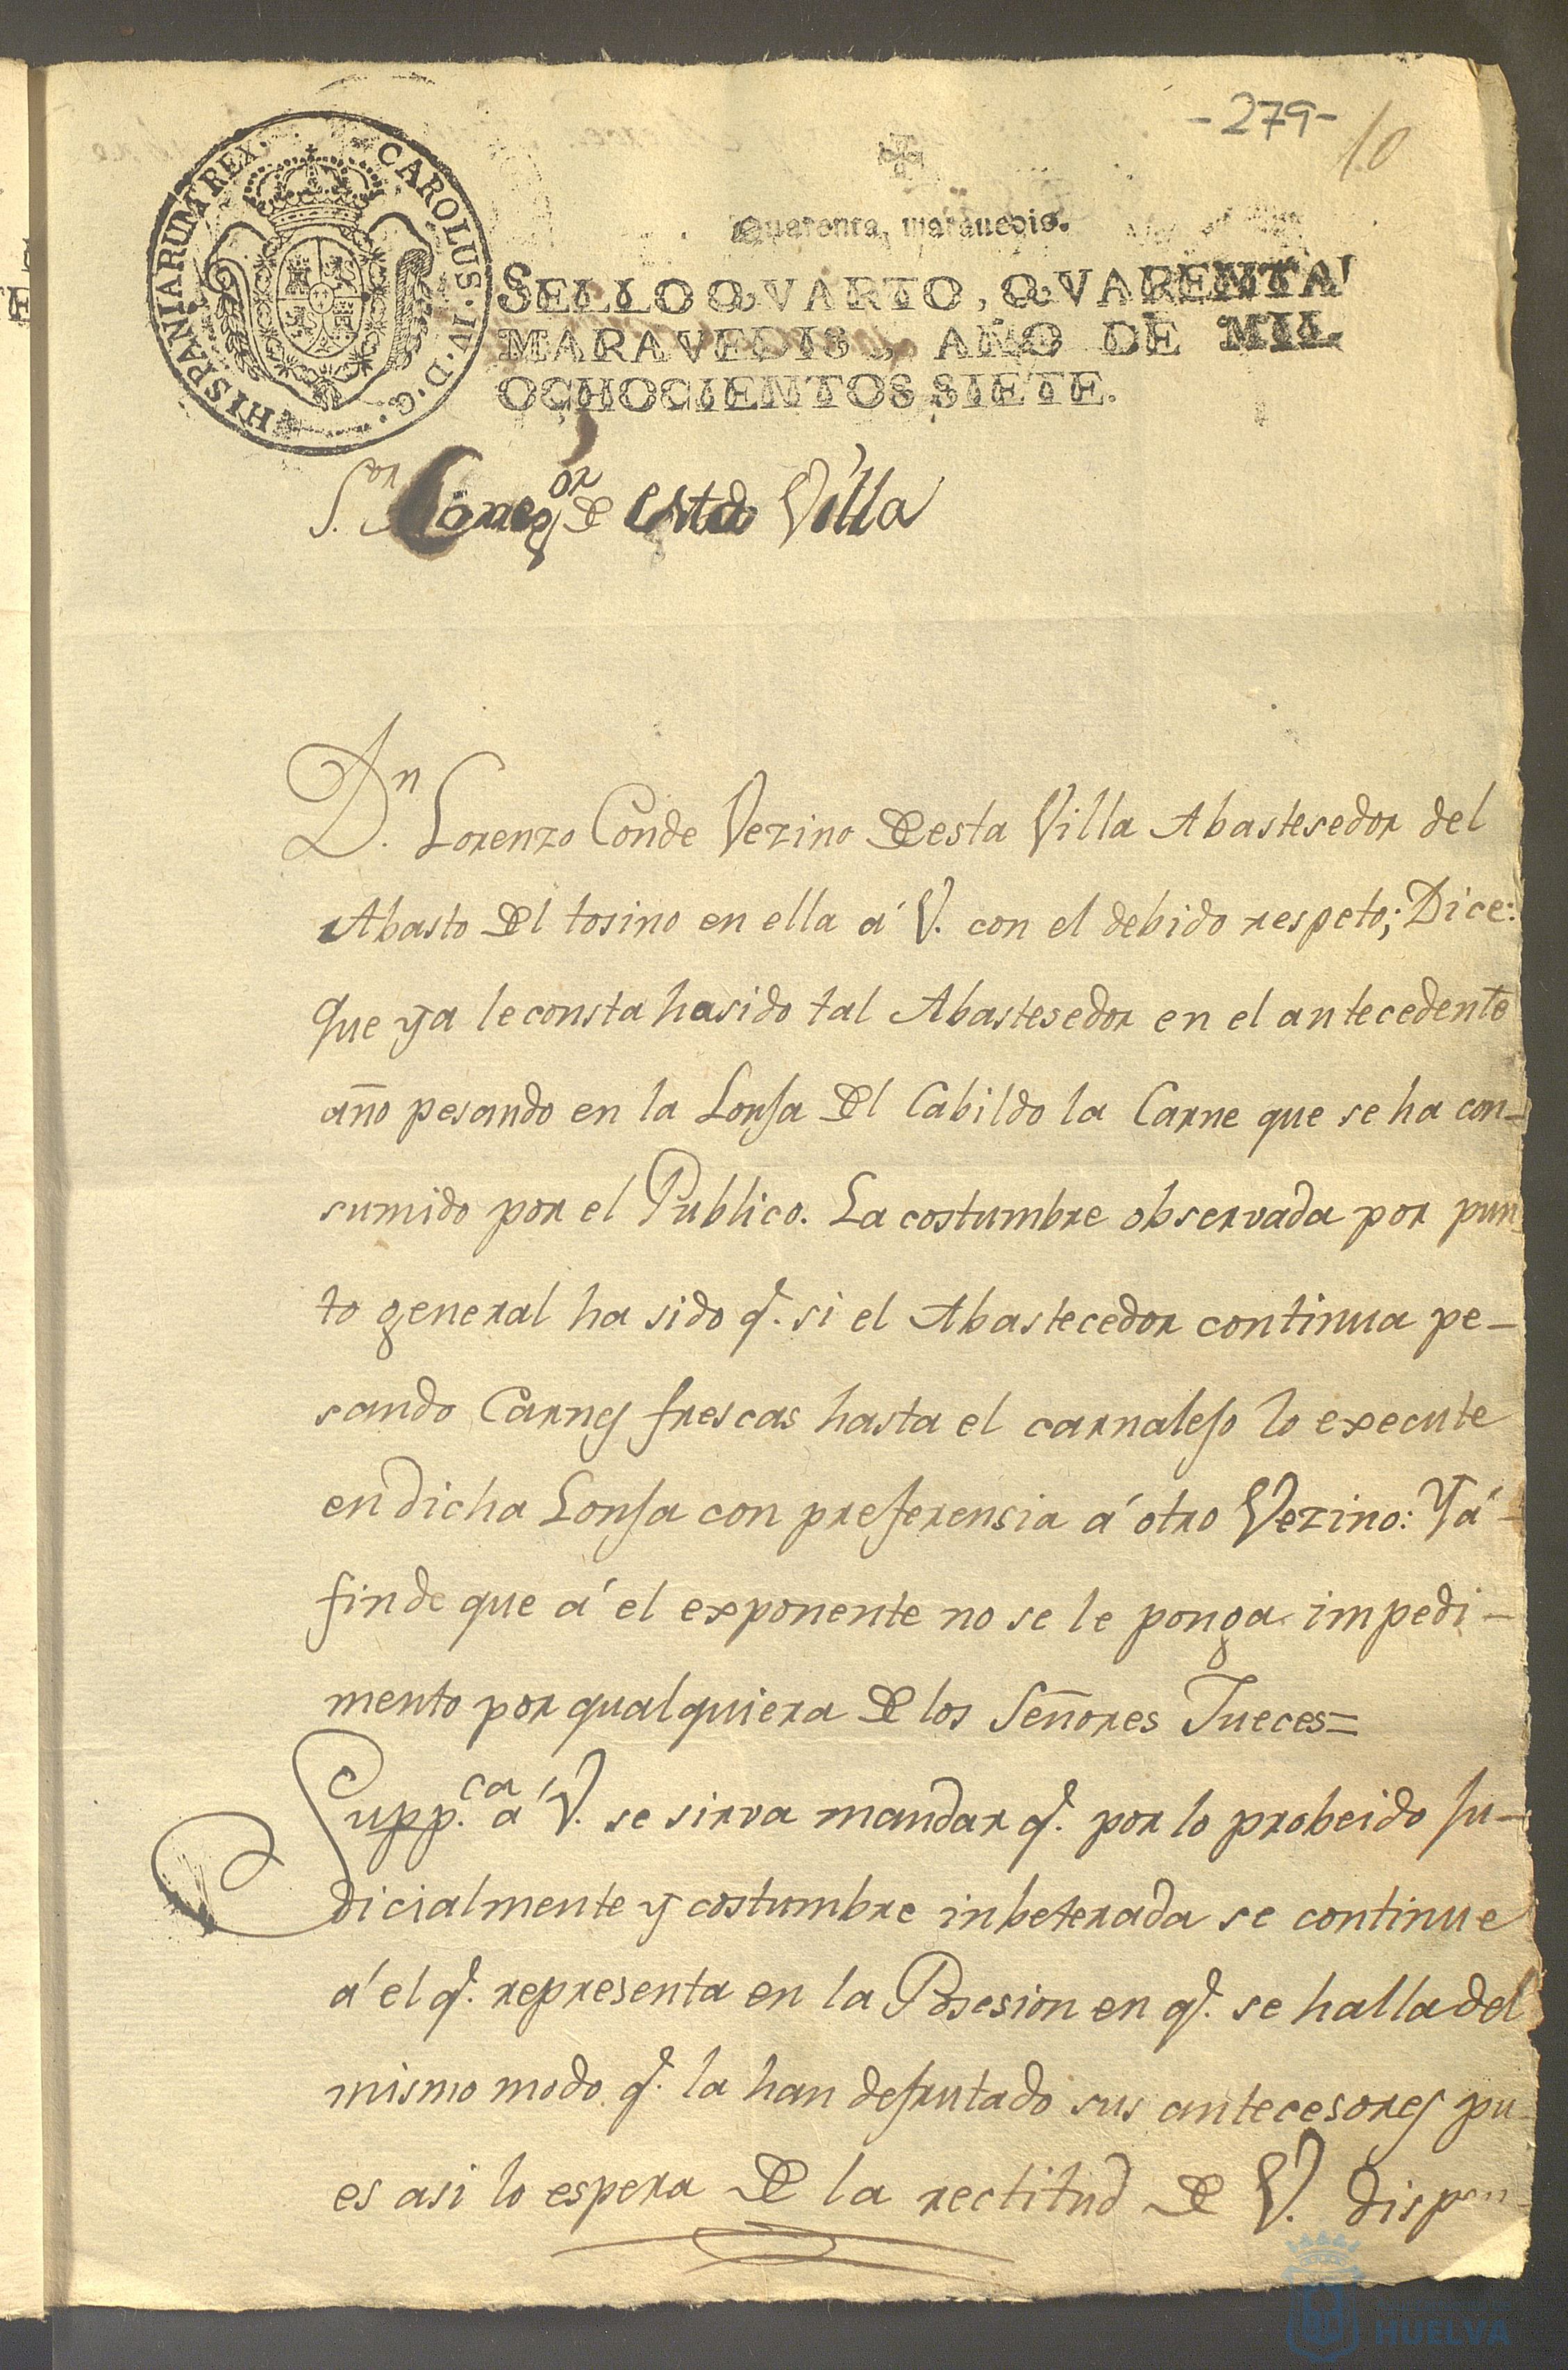 -279-
10
CAROLUS·IV·D·G·HISPANIARUM REX·
Quarenta maravedis.
SELLO QVARTO, QVARENTA
MARAVEDIS, AÑO DE MIL
OCHOCIENTOS SIETE.
S.or Correg.or de esta Villa
D.n Lorenzo Conde Vezino de esta Villa Abastesedor del
Abasto del tosino en ella á V. con el debido respeto; Dice:
Que ya le consta ha sido tal Abastesedor en el antecedente
año pesando en la Lonja del Cabildo la Carne que se ha con-
sumido por el Publico. La costumbre observada por pun
to general ha sido q.e si el Abastecedor continua pe-
sando Carnes frescas hasta el carnalejo lo execute
en dicha Lonja con preferensia á otro Vezino: Yá
fin de que á el exponente no se le ponga impedi-
mento por qualquiera de los Señores Jueces=
Supp.ca á V. se sirva mandar q.e por lo probeido Ju-
dicialmente y costumbre inbeterada se continue
á el q.e representa en la Posesion en q.e se halla del
mismo modo q.e la han desfrutado sus antecesores pu-
es asi lo espera de la rectitud de V.
HUELVA